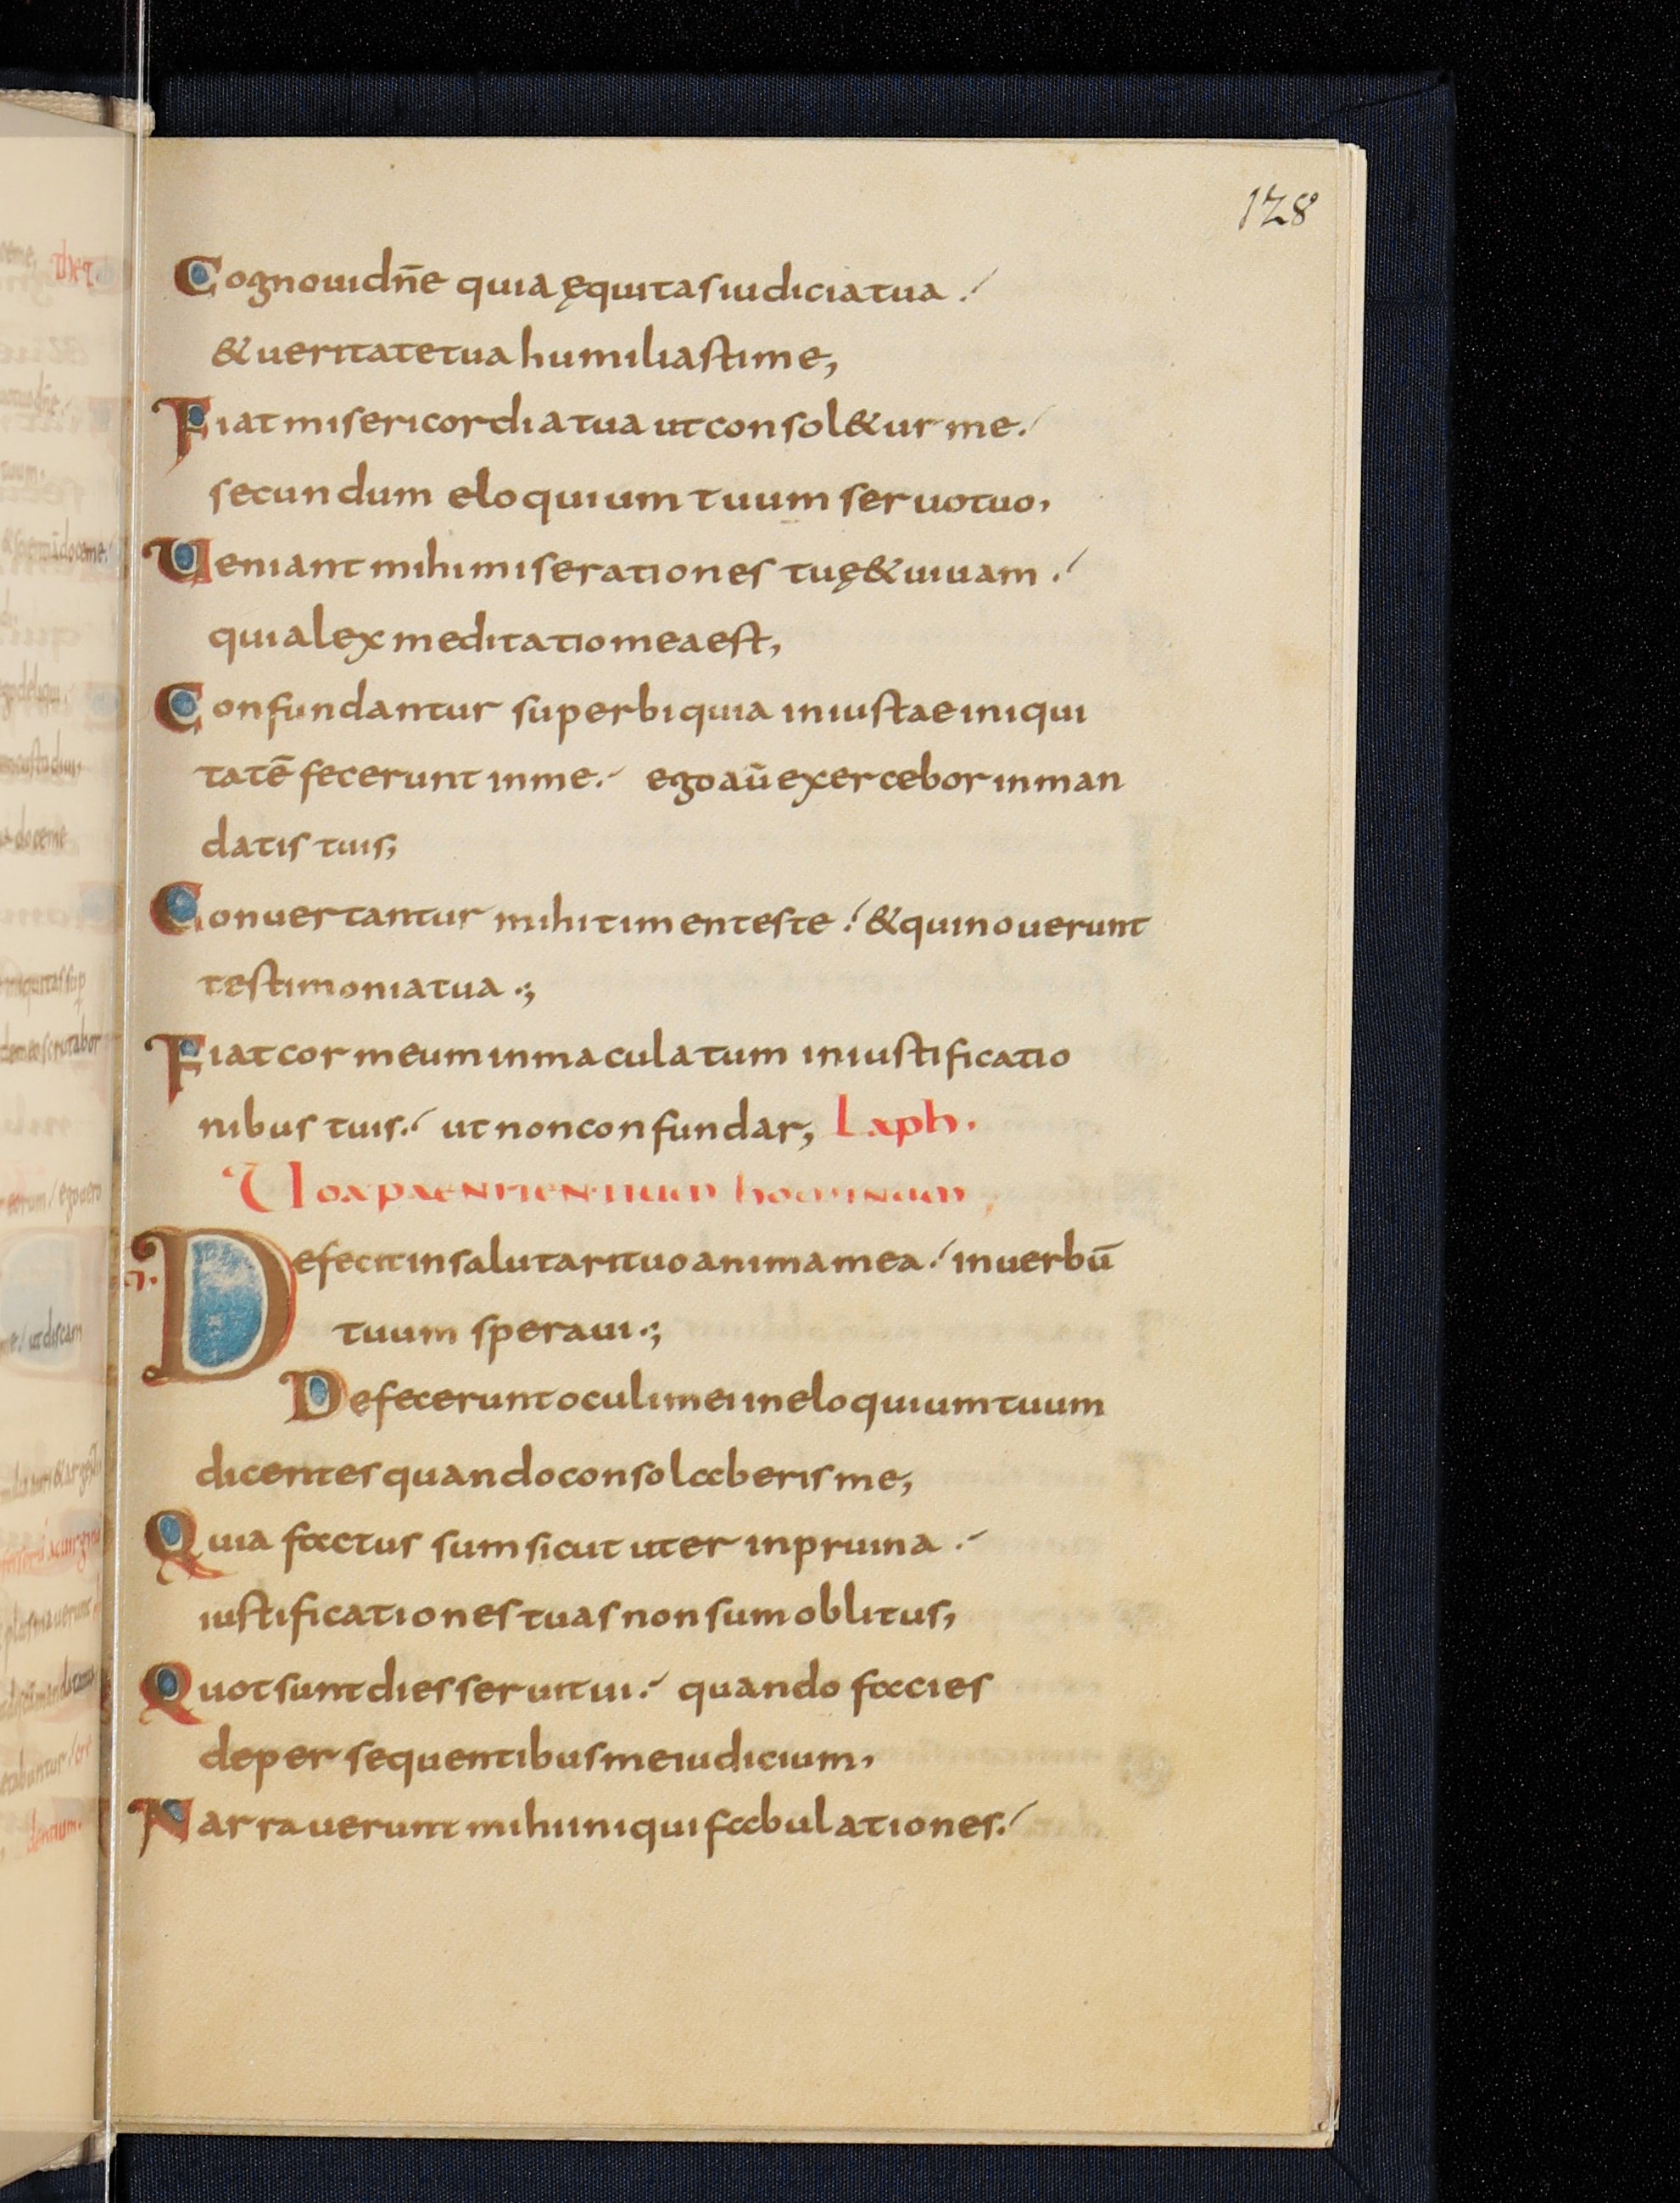 128
Cognoui dn̄e quia ęquitas iudicia tua ./
& ueritate tua humiliasti me,
Fiat misericordia tua ut consol&ur me ./
secundum eloquium tuum seruo tuo,
Ueniant mihi miserationes tuę & uiuam ./
quia lex meditatio mea est,
Confundantur superbi quia iniustae iniqui
tatē fecerunt in me ./ ego aū exercebor in man
datis tuis;
Conuertantur mihi timentes te ./ & qui nouerunt
testimonia tua .;
Fiat cor meum inmaculatum in iustificatio
nibus tuis ./ ut non confundar; Laph.
Uox paenitentium hominum;
Defecit in salutari tuo anima mea ./ in uerbū
tuum speraui .;
Defecerunt oculi mei in eloquium tuum
dicentes quando consolaberis me,
Quia factus sum sicut uter in pruina ./
iustificationes tuas non sum oblitus,
Quot sunt dies serui tui ./ quando facies
de persequentibus me iudicium,
Narrauerunt mihi iniqui fabulationes ./